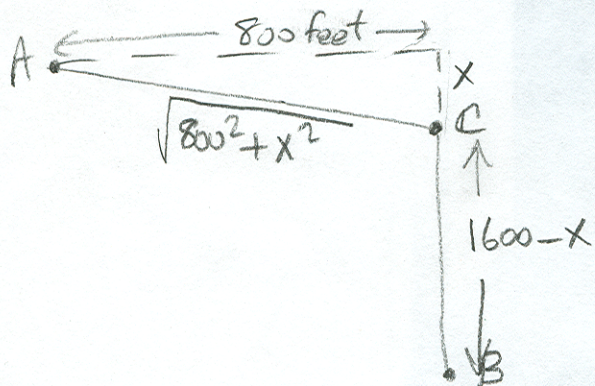 800 feet
A
x
C
√800² + x²
1600 - x
B